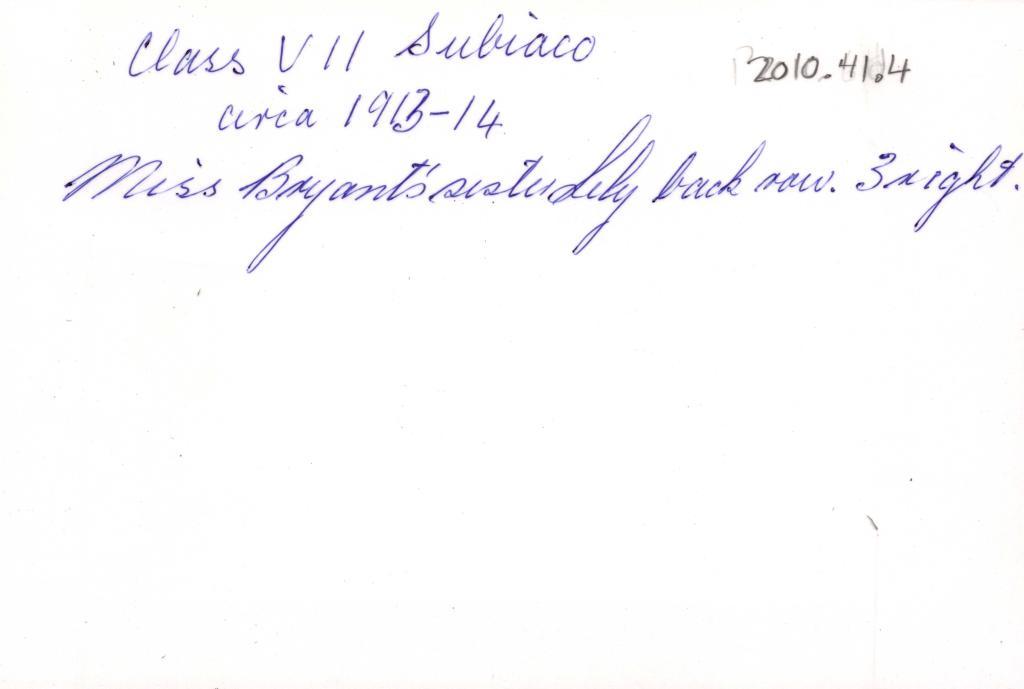 Class VII Subiaco
2010.41.4
circa 1913-14
Miss Bryant's sister Lily back row. 3 right.